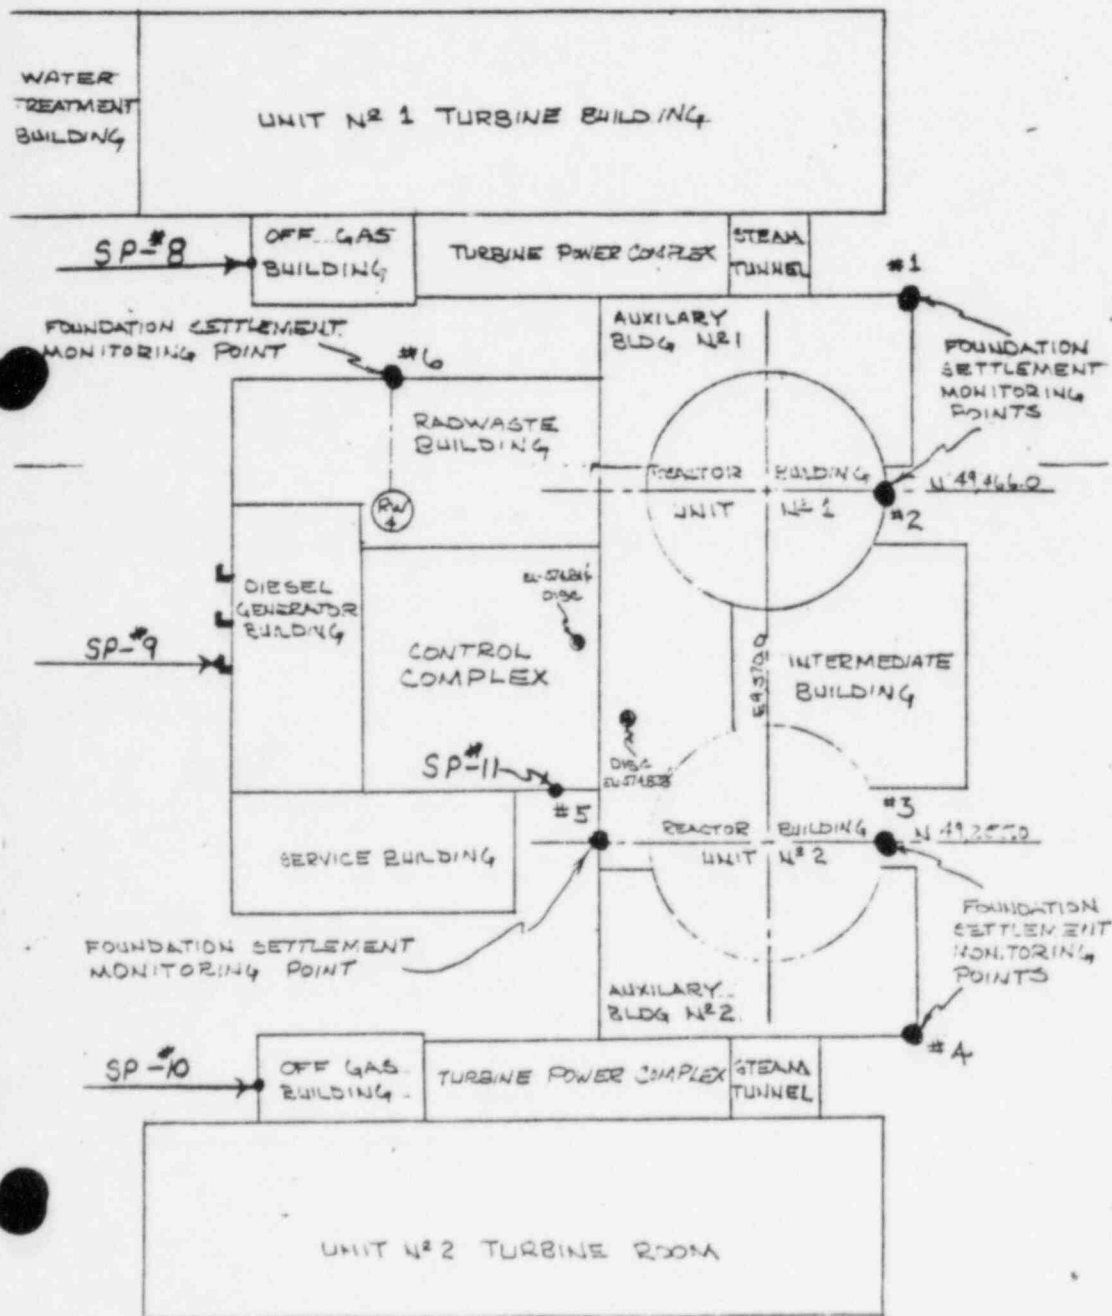 WATER
TREATMENT
BUILDING
UNIT Nº 1 TURBINE BUILDING
SP-#8
OFF GAS
BUILDING
TURBINE POWER COMPLEX
STEAM
TUNNEL
#1
FOUNDATION SETTLEMENT
MONITORING POINT
#6
AUXILARY
BLDG Nº1
FOUNDATION
SETTLEMENT
MONITORING
POINTS
RADWASTE
BUILDING
REACTOR BUILDING
UNIT Nº 1
N 49,466.0
#2
RW
DIESEL
GENERATOR
BUILDING
DISC
SP-#9
CONTROL
COMPLEX
INTERMEDIATE
BUILDING
SP-#11
DISC
#5
#3
REACTOR BUILDING
UNIT Nº 2
SERVICE BUILDING
FOUNDATION SETTLEMENT
MONITORING POINT
FOUNDATION
SETTLEMENT
MONITORING
POINTS
AUXILARY
BLDG Nº2
#4
SP-#10
OFF GAS
BUILDING
TURBINE POWER COMPLEX
STEAM
TUNNEL
UNIT Nº 2 TURBINE ROOM